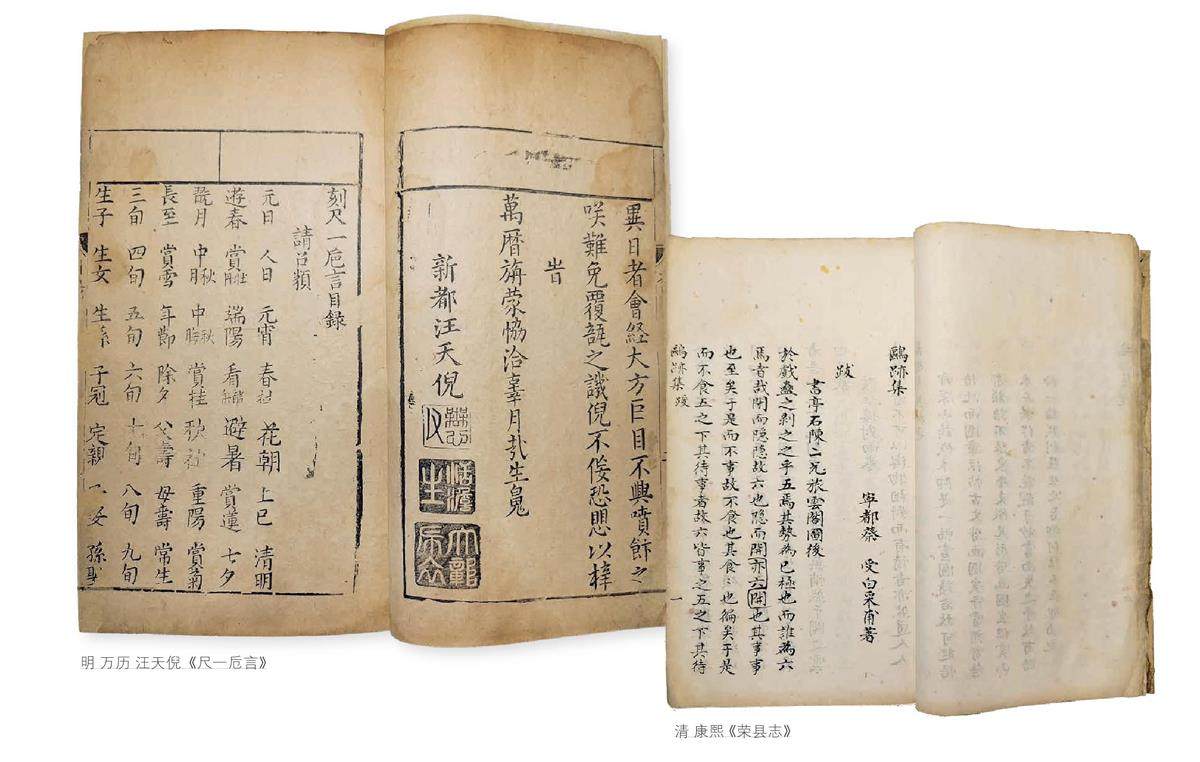 異日者會経大方巨目不與噴飾之
咲難免覆瓿之譏倪不佞恐思以梓
旹
萬曆旃蒙恊洽辜月哉生魄
新都汪天倪
刻尺一巵言目録
請召類
元日 人日 元宵 春社 花朝 上巳 清明
遊春 賞 端陽 看 避暑 賞蓮 七夕
翫月 中秋 中秋 賞桂 秋社 重陽 賞菊
長至 賞雪 年節 除夕 父壽 母壽 常生
三旬 四旬 五旬 六旬 七旬 八旬 九旬
生子 生女 生孫 子冠 定親
明 万历 汪天倪《尺一卮言》
鷗跡集
寧都蔡 受白采甫著
跋
書亭石陳二兄旅雲閣圖後
於戱蠱之剥之乎五焉其勢為已極也而誰為六
焉者哉閉而隐隐故六也隐而閉亦六閉也其事事
也至矣于是而不事故不食也其食也徧矣于是
而不食五之下其待事者故六皆事之五之下其待
鷗跡集 跋 一
清 康熙《荣县志》